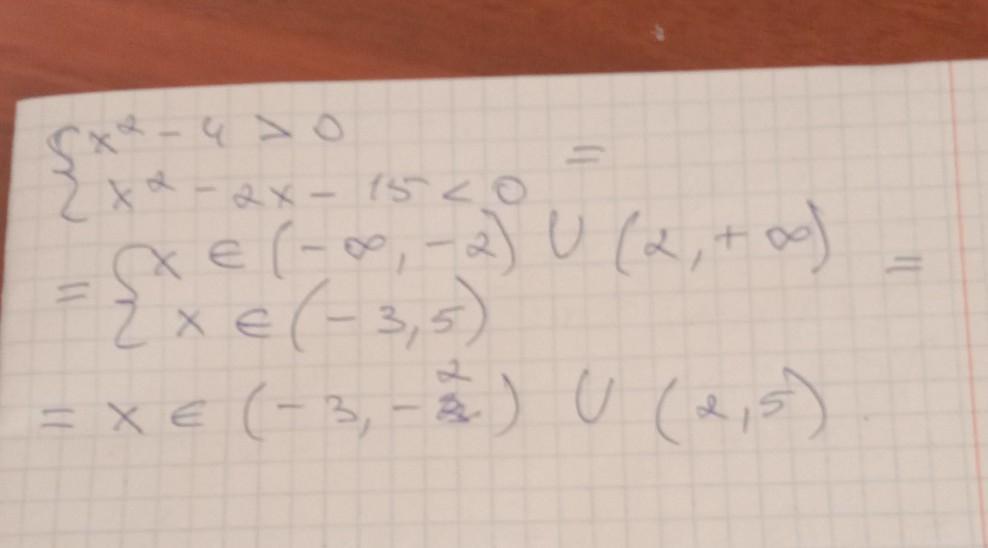 { x² - 4 > 0
{ x² - 2x - 15 < 0 =
= { x ∈ (-∞, -2) ∪ (2, +∞) =
{ x ∈ (-3, 5)
= x ∈ (-3, -2) ∪ (2, 5).